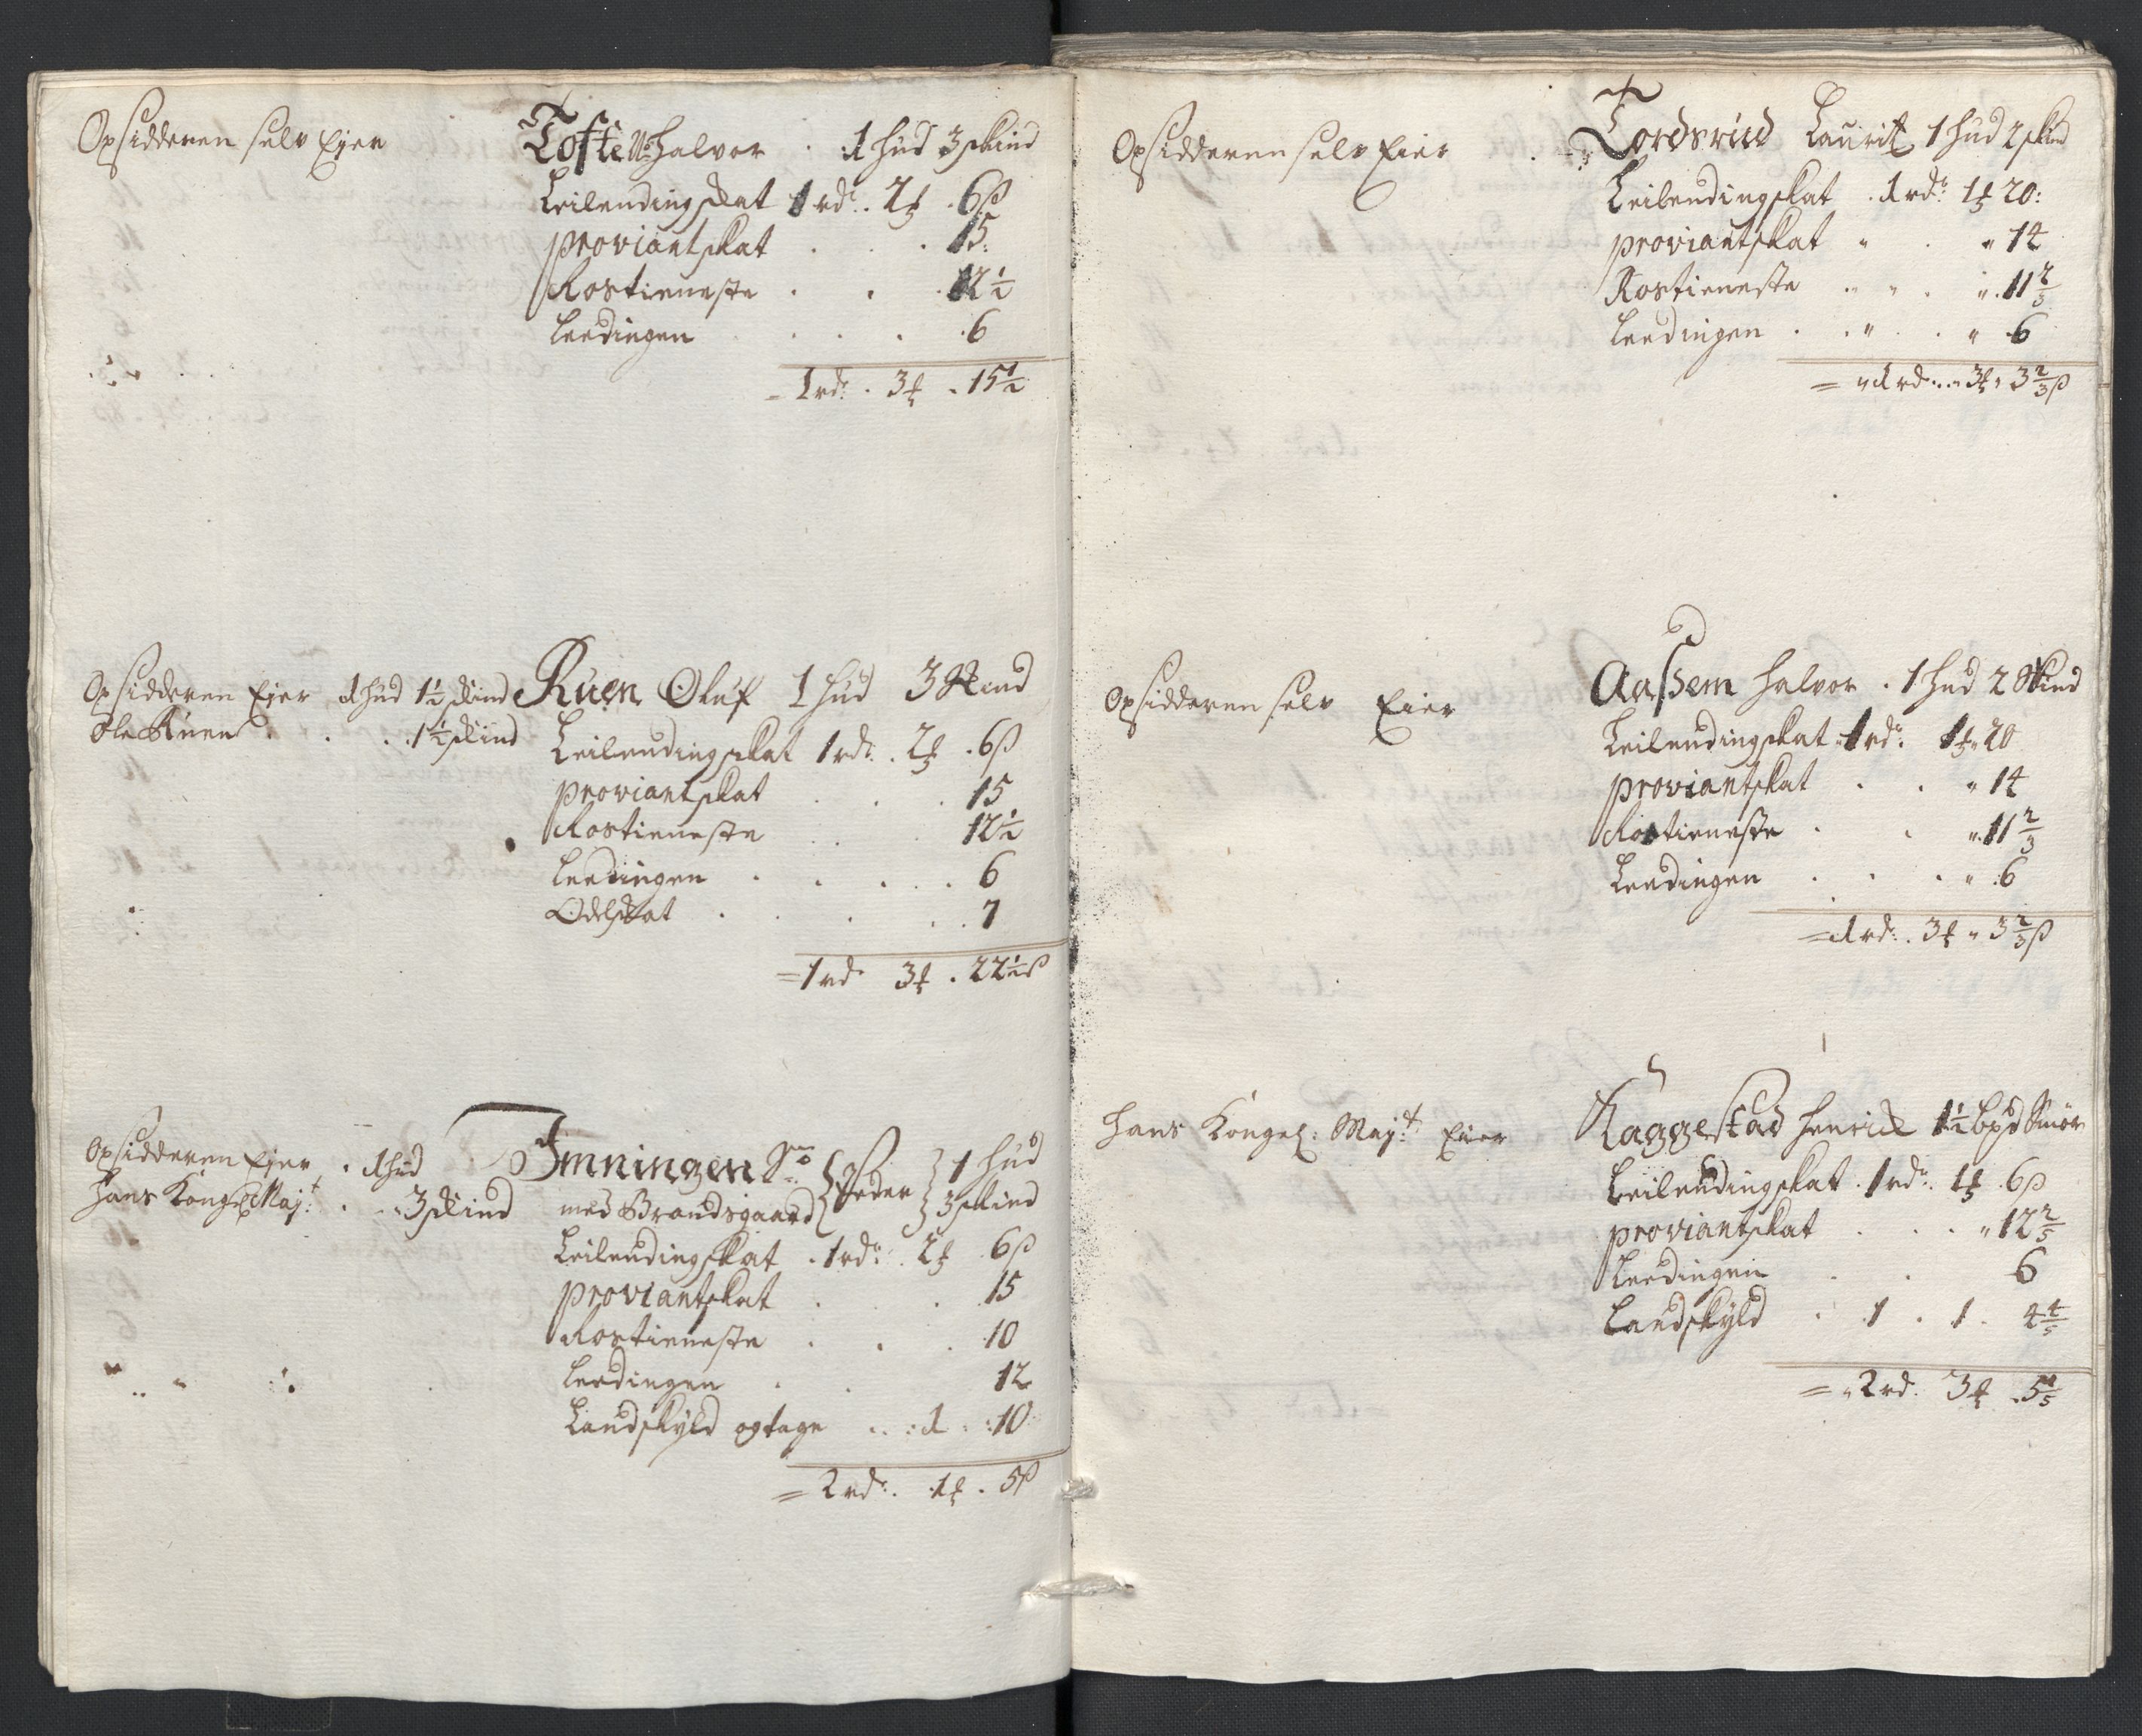 Opsidderen selv Ejer
Tofte No: Halvor . 1 hud 3 skind
Leilendingskat 1 rdr. 2 ℔ . 6 ß
proviantskat . . . 15:
Rostieneste . . . 12½
Leedingen . . . . 6
= 1 rdr. . 3 ℔ . 15½
Opsidderen Ejer 1 hud 1½ skind
Ole Ruen . . . 1½ skind
Ruen Oluf 1 hud 3 Skind
Leilendingskat 1 rdr. . 2 ℔ . 6 ß
proviantskat . . . 15
Rostieneste . . . 12½
Leedingen . . . . . 6
Odelskat . . . . . 7
= 1 rdr 3 ℔ . 22½ ß
Opsidderen Ejer . 1 hud
Hans Kongel: Maj:t . . 3 skind
Imningen Sø: } Peder } 1 hud
med Brandsgaard } 3 skind
Leilendingskat . 1 rdr: . 2 ℔ 6 ß
proviantskat . . . 15
Rostieneste . . . 10
Leedingen . . 12
Landskyld og tage . . : 1 . : 10
= 2 rdr. . 1 ℔ . 5 ß
Opsidderen selv Eier
Tordsrud Lauritz 1 hud 2 skind
Leilendingskat . 1 rdr: 1 ℔ 20:
proviantskat " . " 14
Rostieneste " " . " . 11⅔
Leedingen . . " . . " 6
= " 1 rdr. . " 3 ℔ " 3⅔ ß
Opsidderen selv Eier
Aassem Halvor . 1 hud 2 Skind
Leilendingskat " 1 rdr. 1 ℔ " 20
proviantskat . . " 14
Rostieneste . . " 11⅔
Leedingen . . . " 6
= 1 rdr. . 3 ℔ " 3⅔ ß
Hans Kongel: Maj:t Eier
Raggestad Henrick 1½ bpd Smør
Leilendingskat . 1 rdr. 1 ℔ . 6 ß
proviantskat . . . " 12⅖
Leedingen . . 6
Landskyld . 1 . 1 . 4⅘
= " 2 rdr. 3 ℔ . 5⅕